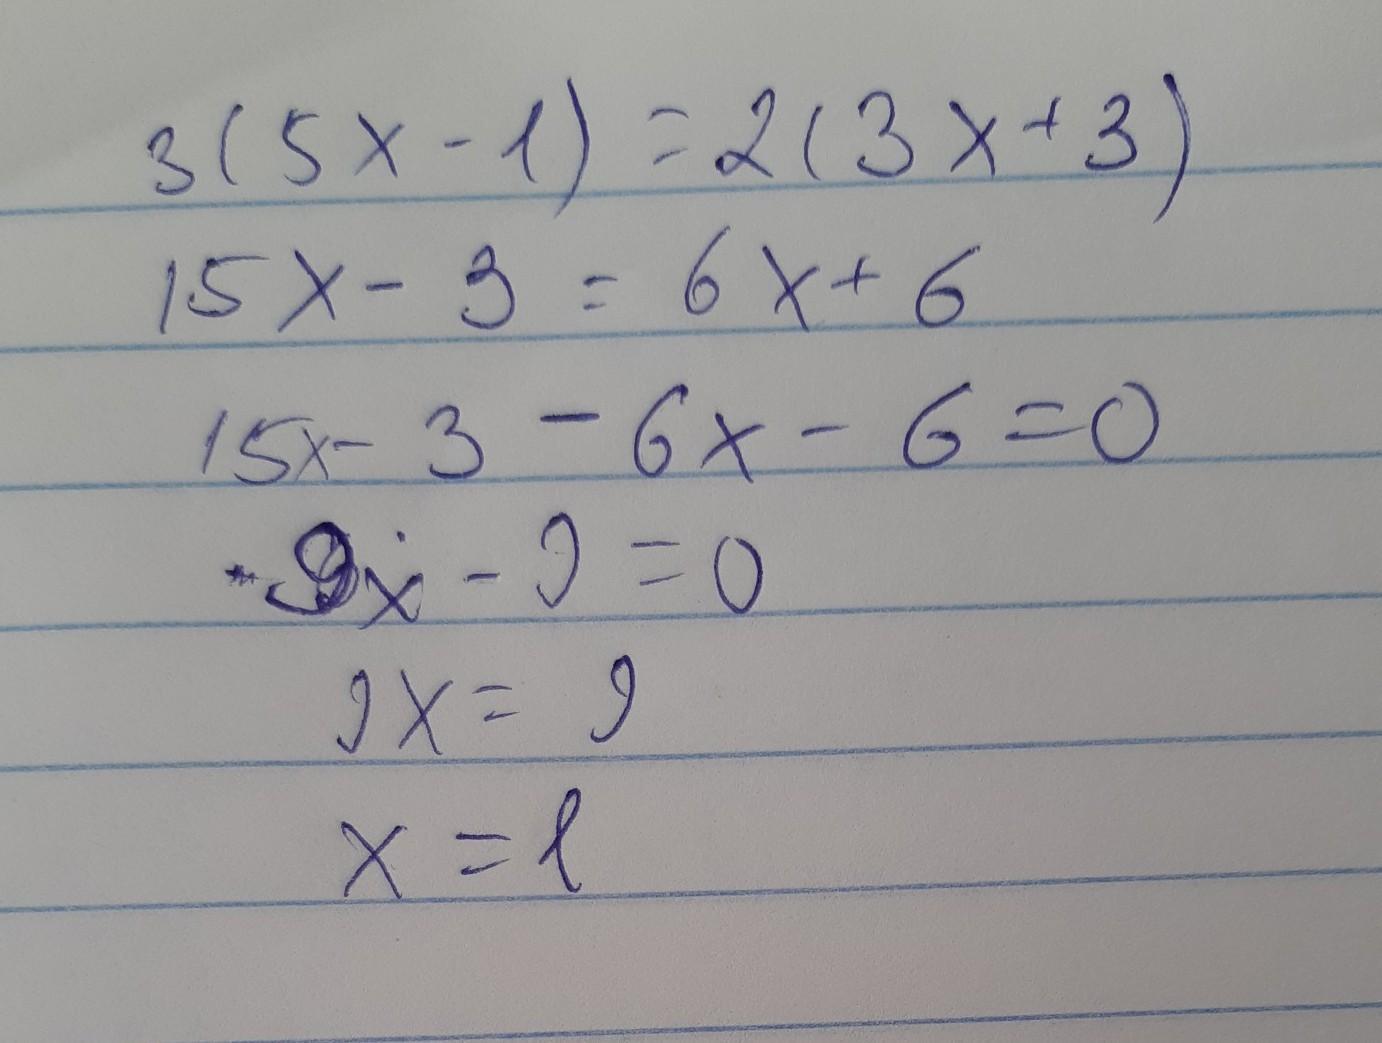 3(5x-1)=2(3x+3)
15x-3=6x+6
15x-3-6x-6=0
9x-9=0
9x=9
x=1